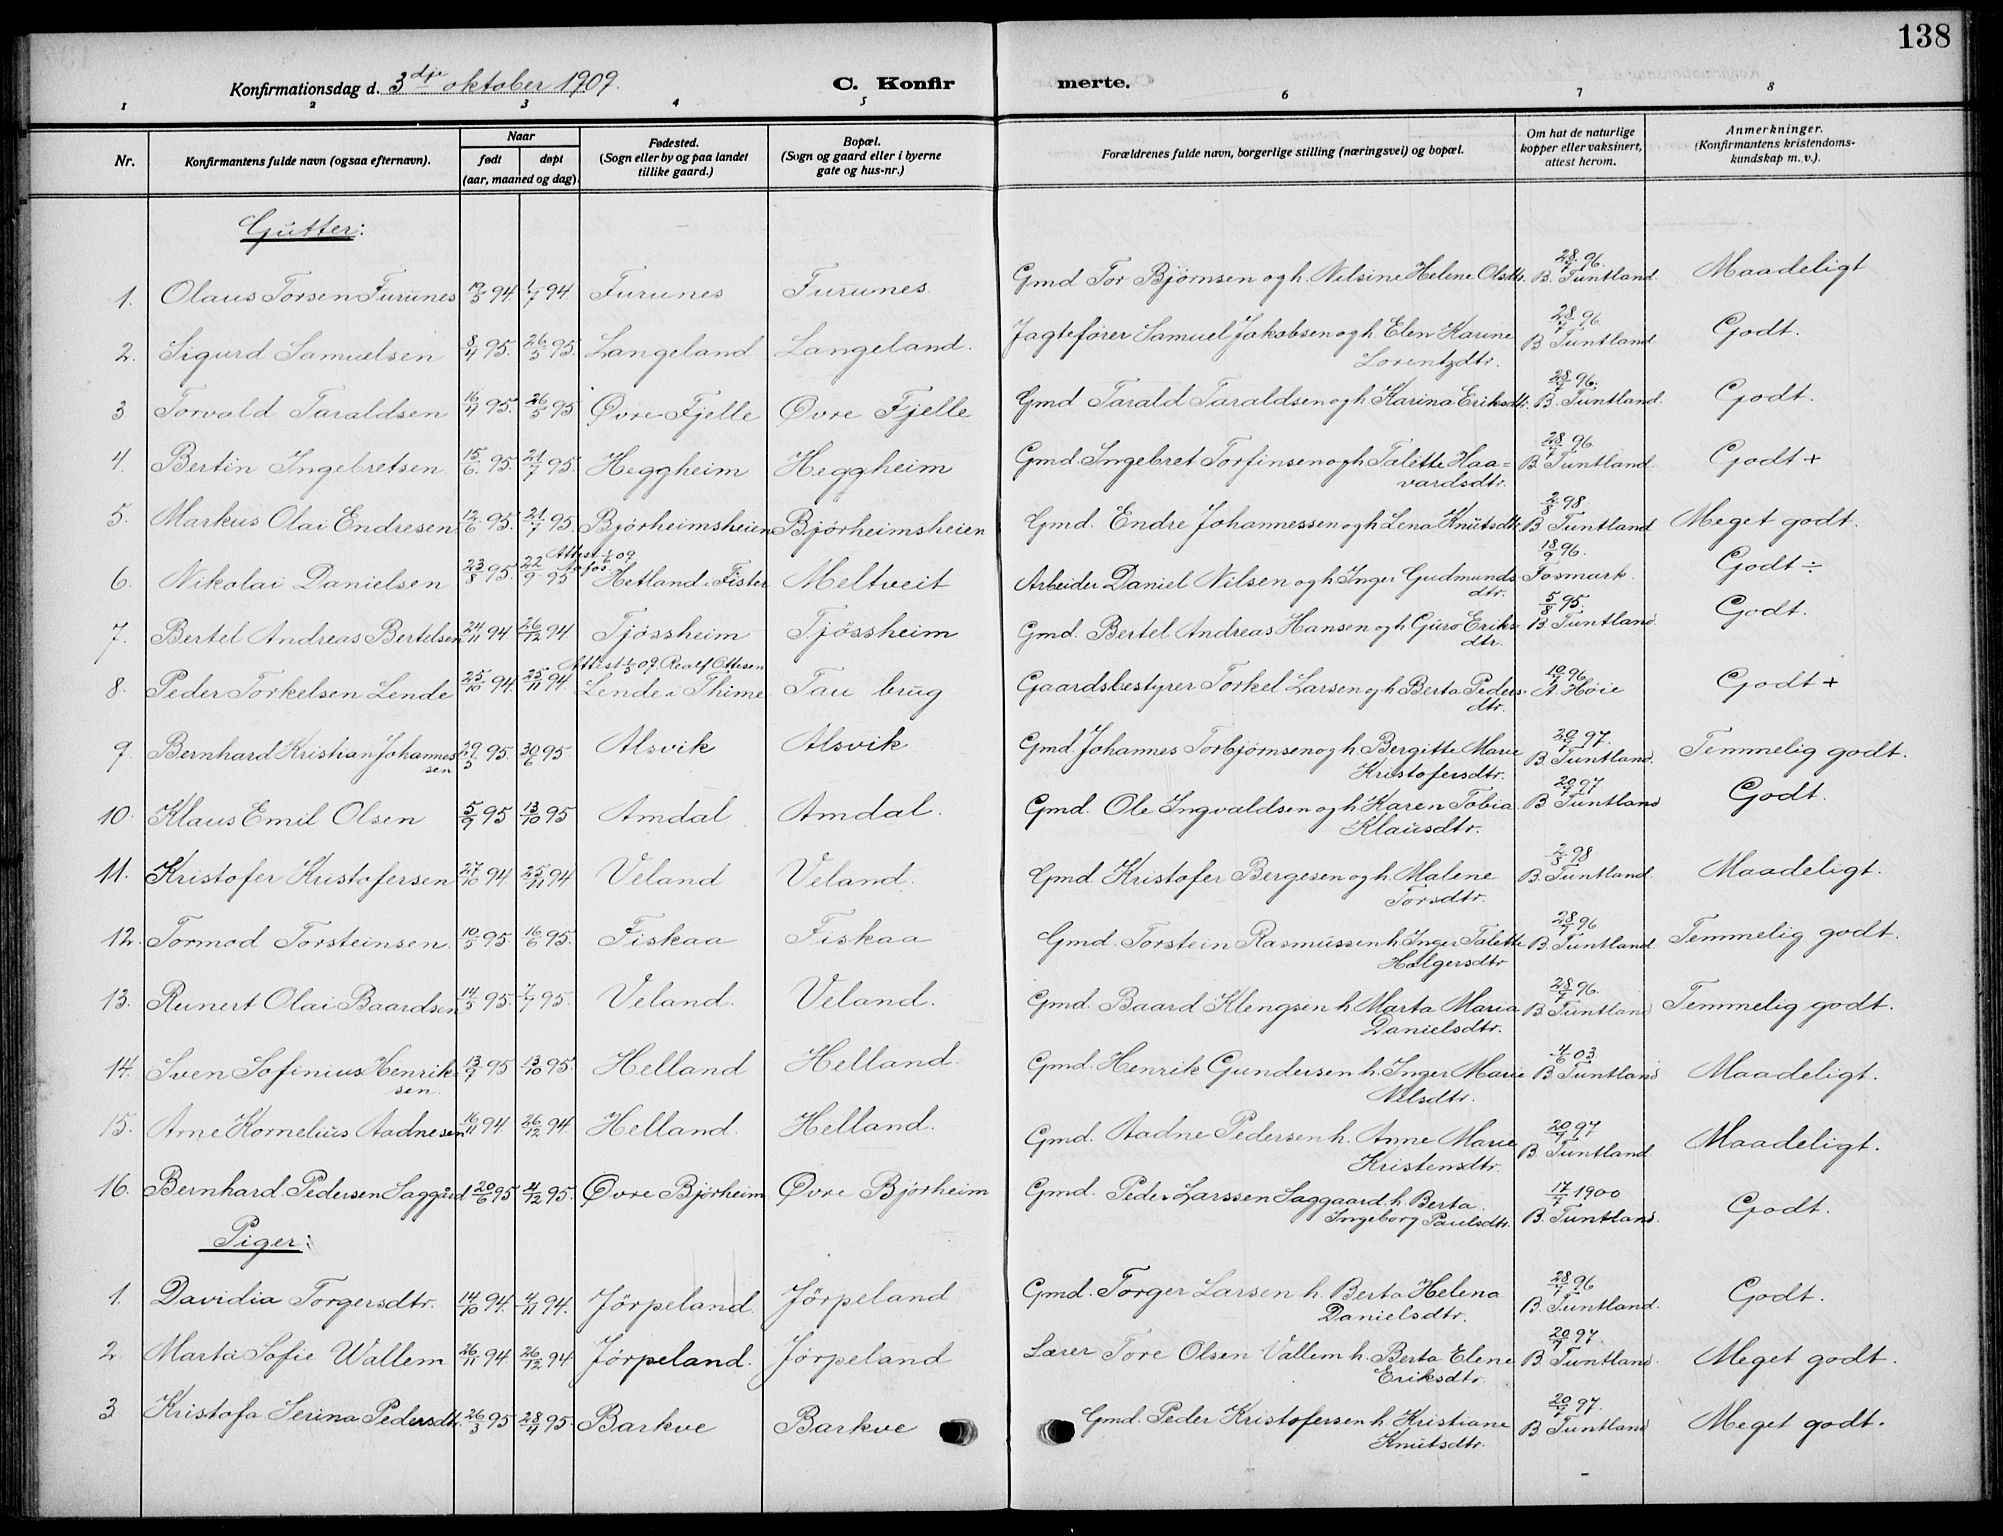 138
Konfirmationsdag d. 3dje oktober 1909. C. Konfirmerte.
1 2 3 4 5 6 7 8
Nr. Konfirmantens fulde navn (ogsaa efternavn). Naar født døpt (aar, maaned og dag). Fødested. (Sogn eller by og paa landet tillike gaard.) Bopæl. (Sogn og gaard eller i byerne gate og hus-nr.) Forældrenes fulde navn, borgerlige stilling (næringsvei) og bopæl. Om hat de naturlige kopper eller vaksinert, attest herom. Anmerkninger. (Konfirmantens kristendoms-kundskap m. v.).
Gutter:
1. Olaus Torsen Furunes 19/5 94. 1/7 94. Furunes Furunes Gmd Tor Bjørnsen og h. Nilsine Helene Olsdtr. 28/7 96. B. Tuntland. Maadeligt
2. Sigurd Samuelsen 8/4 95. 26/5 95. Langeland Langeland. Jagtefører Samuel Jakobsen og h. Elen Karine Lorentzdtr. 28/7 96. B. Tuntland Godt.
3 Torvald Taraldsen 16/4 95. 26/5 95 Øvre Fjelle Øvre Fjelle Gmd Tarald Taraldsen og h Karina Eriksdtr. 28/7 96. B. Tuntland. Godt.
4. Bertin Ingebretsen. 15/6 95. 21/7 95. Heggheim Heggheim Gmd. Ingebret Torfinsen og h Talette Haa=vardsdtr. 28/7 96. B. Tuntland. Godt +
5. Markus Olai Endresen 12/6 95. 21/7 95. Bjørheimsheien Bjørheimsheien Gmd. Endre Johannessen og h Lena Knutsdtr. 2/8 98. B. Tuntland Meget godt.
6. Nikolai Danielsen 23/8 95. 22/9 95 Attest 1/6 09 Hetland i Fister Meltveit Arbeider Daniel Nilsen og h Inger Gudmundsdtr. 18/9 96. Fosmark. Godt ÷
7. Bertel Andreas Bertelsen 24/11 94 26/12 94 Tjøssheim Tjøssheim Gmd. Bertel Andreas Hansen og h Guro Eriksdtr. 5/8 95. B Tuntland. Godt.
8. Peder Torkelsen Lende 25/10 94. 25/11 94. Attest 1/5 09. Realf Ottesen Lende i Thime Tau brug Gaardsbestyrer Torkel Larsen og h Berta Pedersdtr. 10/7 96 A. Høie Godt +
9. Bernhard Kristian Johannessen 29/5 95. 30/6 95 Alsvik Alsvik Gmd. Johannes Torbjørnsen og h. Bergitte Marie Kristofersdtr. 20/7 97. B. Tuntland. Temmelig godt.
10. Klaus Emil Olsen 5/9 95 13/10 95 Amdal Amdal. Gmd. Ole Ingvaldsen og h Karen Tobia Klausdtr. 20/7 97 B Tuntland Godt.
11. Kristofer Kristofersen 27/10 94. 25/11 94 Veland Veland. Gmd. Kristofer Bergesen og h. Malene Torsdtr. 2/8 98. B. Tuntland. Maadeligt.
12. Tormod Torsteinsen. 10/5 95. 16/6 95. Fiskaa Fiskaa Gmd. Torstein Rasmussen h Inger Talette Holgersdtr 28/7 96 B. Tuntland Temmelig godt.
13. Reinert Olai Baardsen 14/5 95. 7/7 95. Veland. Veland. Gmd. Baard Klengsen h. Marta Maria Danielsdtr. 28/7 96. B. Tuntland Temmelig godt.
14. Sven Sofinius Henriksen. 13/9 95 13/10 95. Helland Helland. Gmd. Henrik Gundersen h. Inger Marie Nilsdtr. 4/6 03. B Tuntland Maadeligt.
15. Arne Kornelius Aadnesen 16/11 94. 26/12 94. Helland. Helland. Gmd. Aadne Pedersen h. Anne Marie Kristensdtr. 20/7 97 B. Tuntland. Maadeligt.
16. Bernhard Pedersen Saggård 20/6 95 4/12 95. Øvre Bjørheim Øvre Bjørheim Gmd. Peder Larssen Saggaard h. Berta Ingeborg Paulsdtr. 17/7 1900 B. Tuntland. Godt.
Piger:
1. Davidia Torgersdtr. 14/10 94. 4/11 94. Jørpeland. Jørpeland Gmd. Torger Larsen h. Berta Helena Danielsdtr. 28/7 96 B. Tuntland. Godt.
2. Marta Sofie Wallem 26/11 94. 26/12 94 Jørpeland. Jørpeland Lærer Tore Olsen Vallem h. Berta Elene Eriksdtr. 20/7 97. B. Tuntland. Meget godt.
3 Kristofa Serina Pedersdtr. 26/3 95 28/4 95. Barkve Barkve Gmd. Peder Kristofersen h. Kristiane Knutsdtr. 20/7 97. B Tuntland Meget godt.